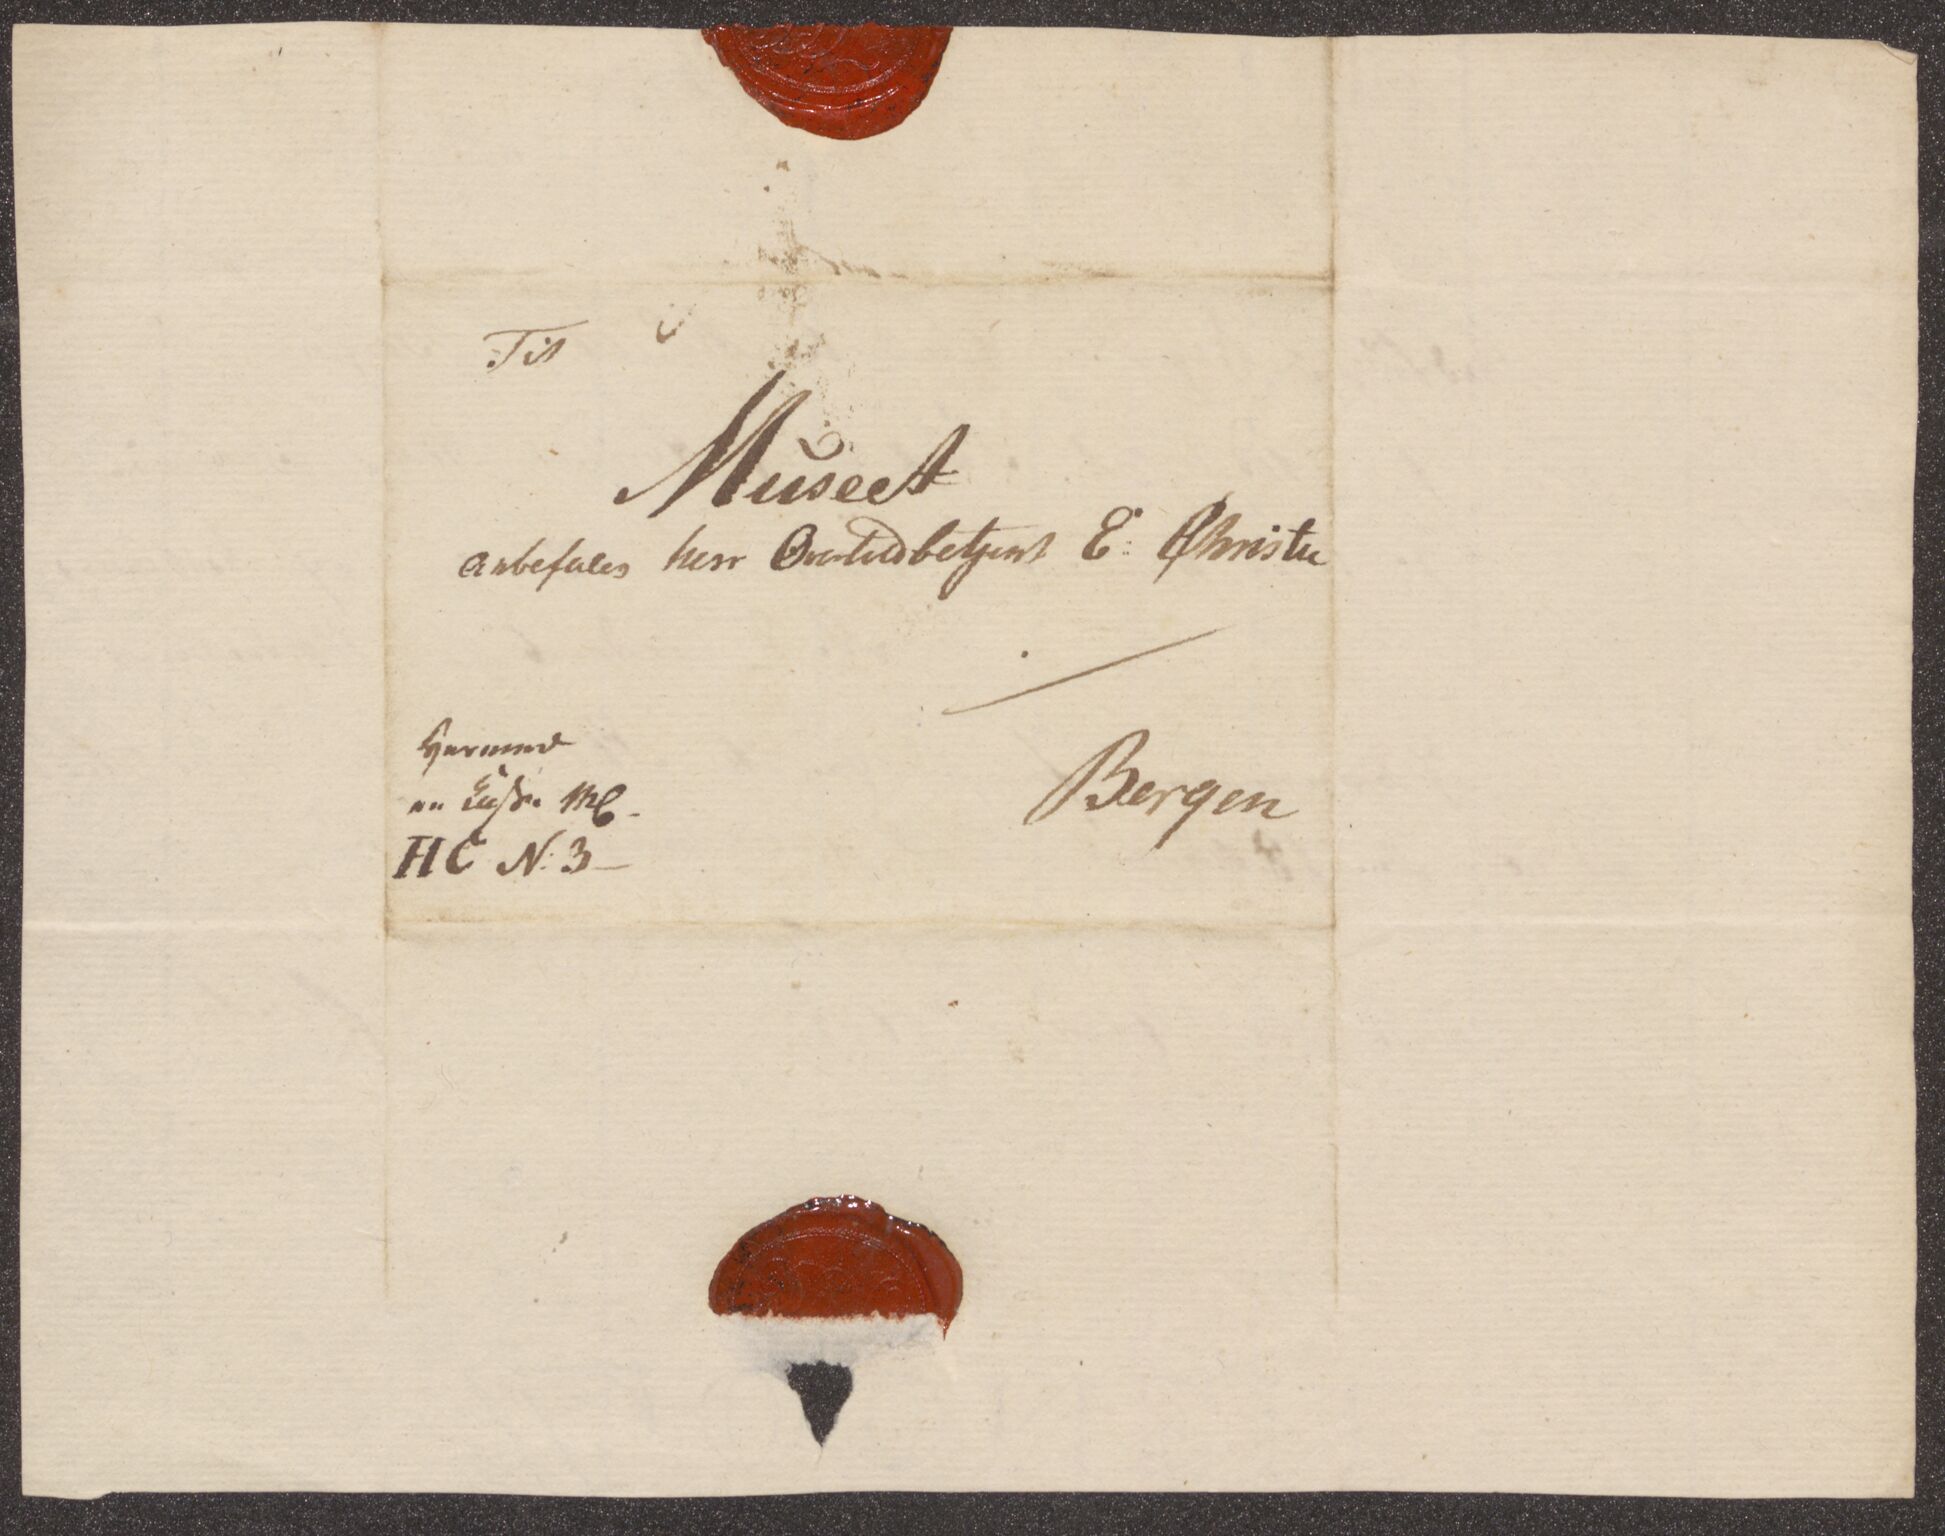 Til
Museet
anbefales herr Overtoldbetjent E: Christie
Bergen
Hermed
en Casse Mk
HC N: 3